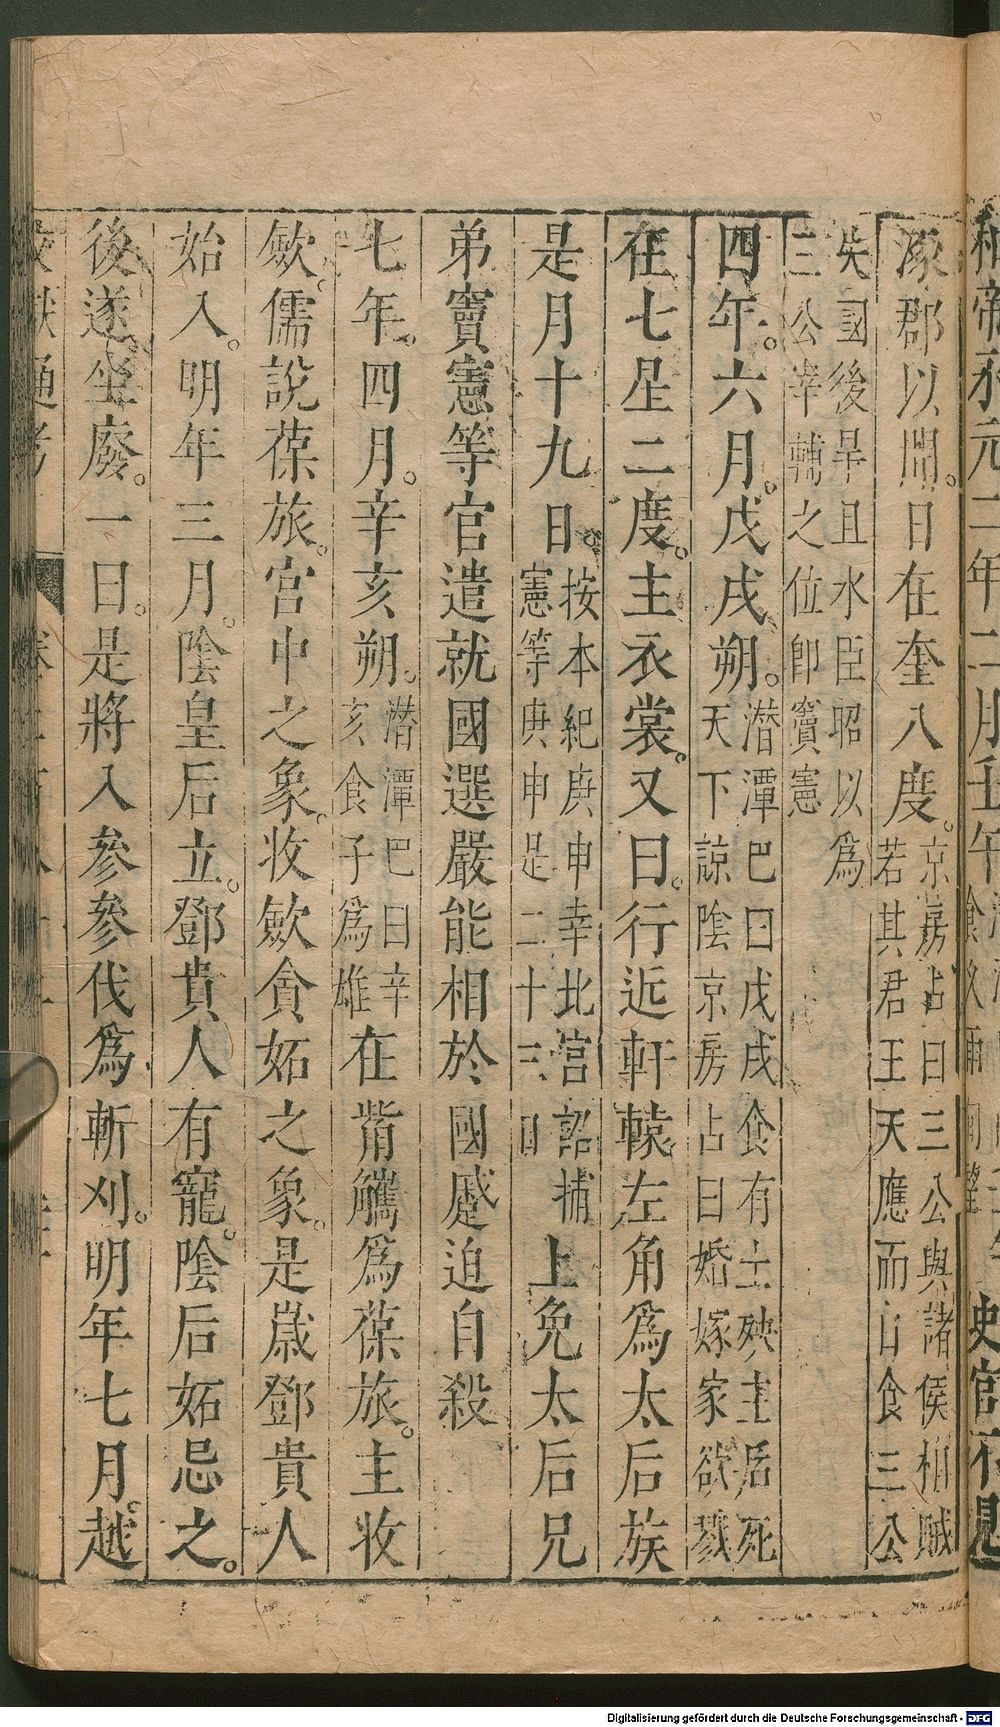 和帝永元二年二月壬午 史官不見
涿郡以聞。日在奎八度。京房占曰三公與諸侯相賊
若其君王天應而日食三公
失國後旱且水臣昭以爲
三公宰輔之位卽竇憲
四年。六月。戊戌朔。潜潭巴曰戊戌食有土殃主后死
天下諒陰京房占曰婚嫁家欲戮
在七星二度。主衣裳。又曰。行近軒轅左角爲太后族
是月十九日。按本紀庚申幸北宮詔捕
憲等庚申是二十三日
上免太后兄
弟竇憲等官遣就國選嚴能相於國蹙迫自殺
七年。四月。辛亥朔。潜潭巴曰辛
亥食子爲雄
在觜觿爲葆旅。主收
歛。儒說葆旅。宮中之象。收歛貪妬之象。是嵗鄧貴人
始入。明年三月。陰皇后立。鄧貴人有寵。陰后妬忌之。
後遂坐廢。一日。是將入參參伐爲斬刈。明年七月。越
文獻通考
Digitalisierung gefördert durch die Deutsche Forschungsgemeinschaft - DFG